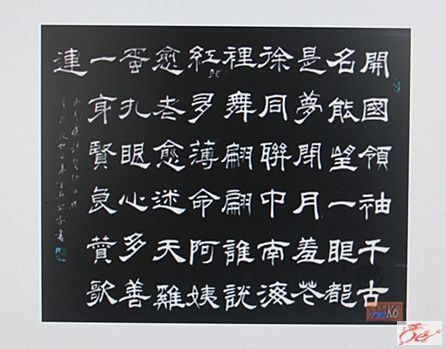 開國領袖千古
名能望一眼都
是夢閉月羞花
徐同聯中南海
裡舞翩翩誰說
紅多薄命阿姨
愈老愈迷天雞
蛋孔眼心多善
一身賢良贊歌
連
K6